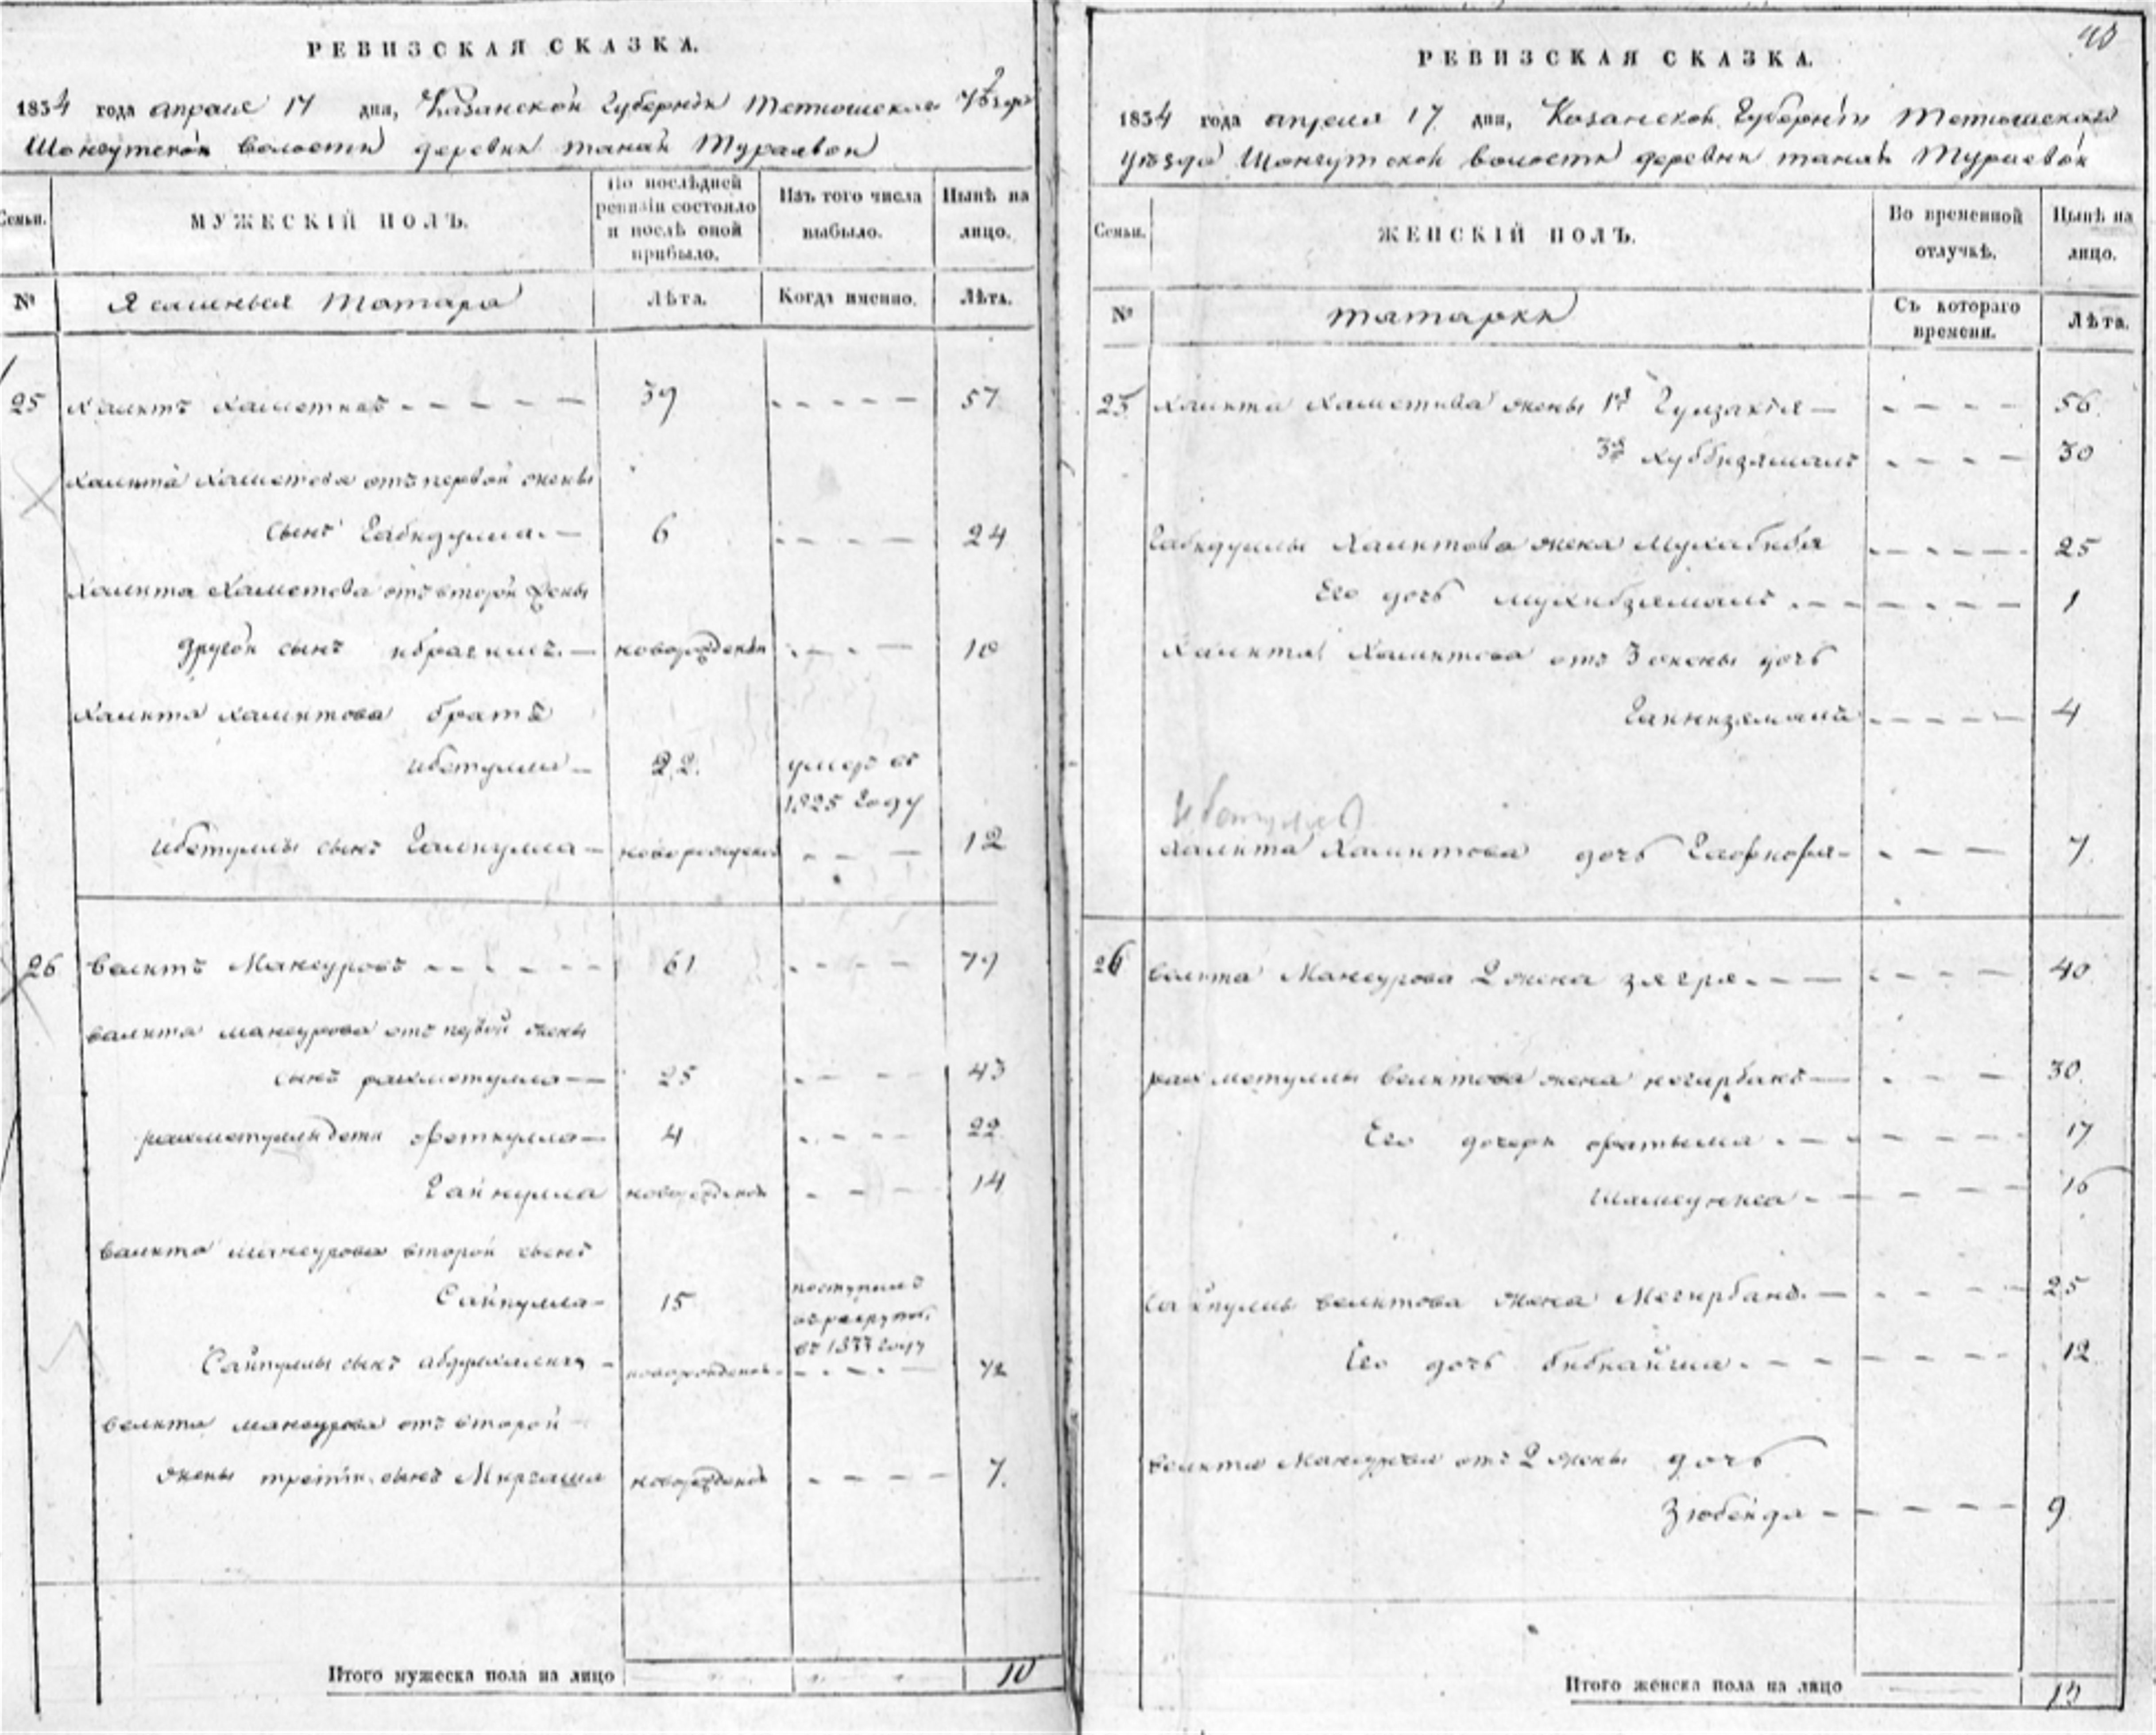 РЕВИЗСКАЯ СКАЗКА.
1834 года апреля 17 дня, Казанской Губернии Тетюшскаго Уѣзда
Шонгутской волости деревни танай Тураевой
Семьи.
МУЖЕСКІЙ ПОЛЪ.
По послѣдней ревизіи состояло и послѣ оной прибыло.
Изъ того числа выбыло.
Нынѣ на лицо.
№
Ясашныя Татара
Лѣта.
Когда именно.
Лѣта.
25 Халитъ Хаметовъ - - - - - 39 - - - - - 57
Халита Хаметова отъ первой жены
сынъ Габидулла. — 6 - - - - 24
Халита Хаметова отъ второй жены
другой сынъ ибрагимъ. — новорожденный - - - 10
Халита Халитова братъ
ибетулла — 22. умеръ въ
1825 году
ибетуллы сынъ Галиулла — новорожденной - - - 12
26 Валитъ Мансуровъ - - - - - 61 - - - - 79
Валита мансурова отъ первой жены
сынъ рахметулла — 25 - - - - 43
рахметуллы дети феткулла — 4 - - - - 22
Гайнулла новорожденной - - - 14
Валита мансурова второй сынъ
Сайпулла — 15 поступилъ
въ рекруты
въ 1833 году
Сайпуллы сынъ - новорожденной - - - - - 12
Велита мансурова отъ второй
жены третій сынъ новорожденной - - - - 7.
Итого мужеска пола на лицо 10
40
РЕВИЗСКАЯ СКАЗКА.
1834 года апреля 17 дня, Казанской Губерніи Тетюшскаго
Уѣзда Шонгутской волости деревни танай Тураевой
Семьи.
ЖЕНСКІЙ ПОЛЪ.
Во временной отлучкѣ.
Нынѣ на лицо.
№
татарки
Съ котораго времени.
Лѣта.
25 Халита Хаметова жены 1я Гулзахія — - - - - 56
3я Хуббизямалъ - - - - 30
Габидуллы Халитова жена Мухабибя - - - - 25
Его дочь мухибзямалъ . - - - - - 1
Халита Халитова отъ 3 жены дочь
- - - - 4
Ибетуллы
Халита Халитова дочь - - - - 7.
26 Валита Мансурова 2 жена зягря. - - — - - - - 40
рахметуллы Велитова жена — - - - 30.
Его дочери фатыма . - - - - - - 17
Шамсуниса - — - - - 16
Сайпуллы велитова жена Мегирбанъ. — - - - - 25
Его дочь бибкайша. - - - - - - 12.
Велита Мансурова отъ 2 жены дочь
Зюбейда - - - - - 9
Итого женска пола на лицо 13